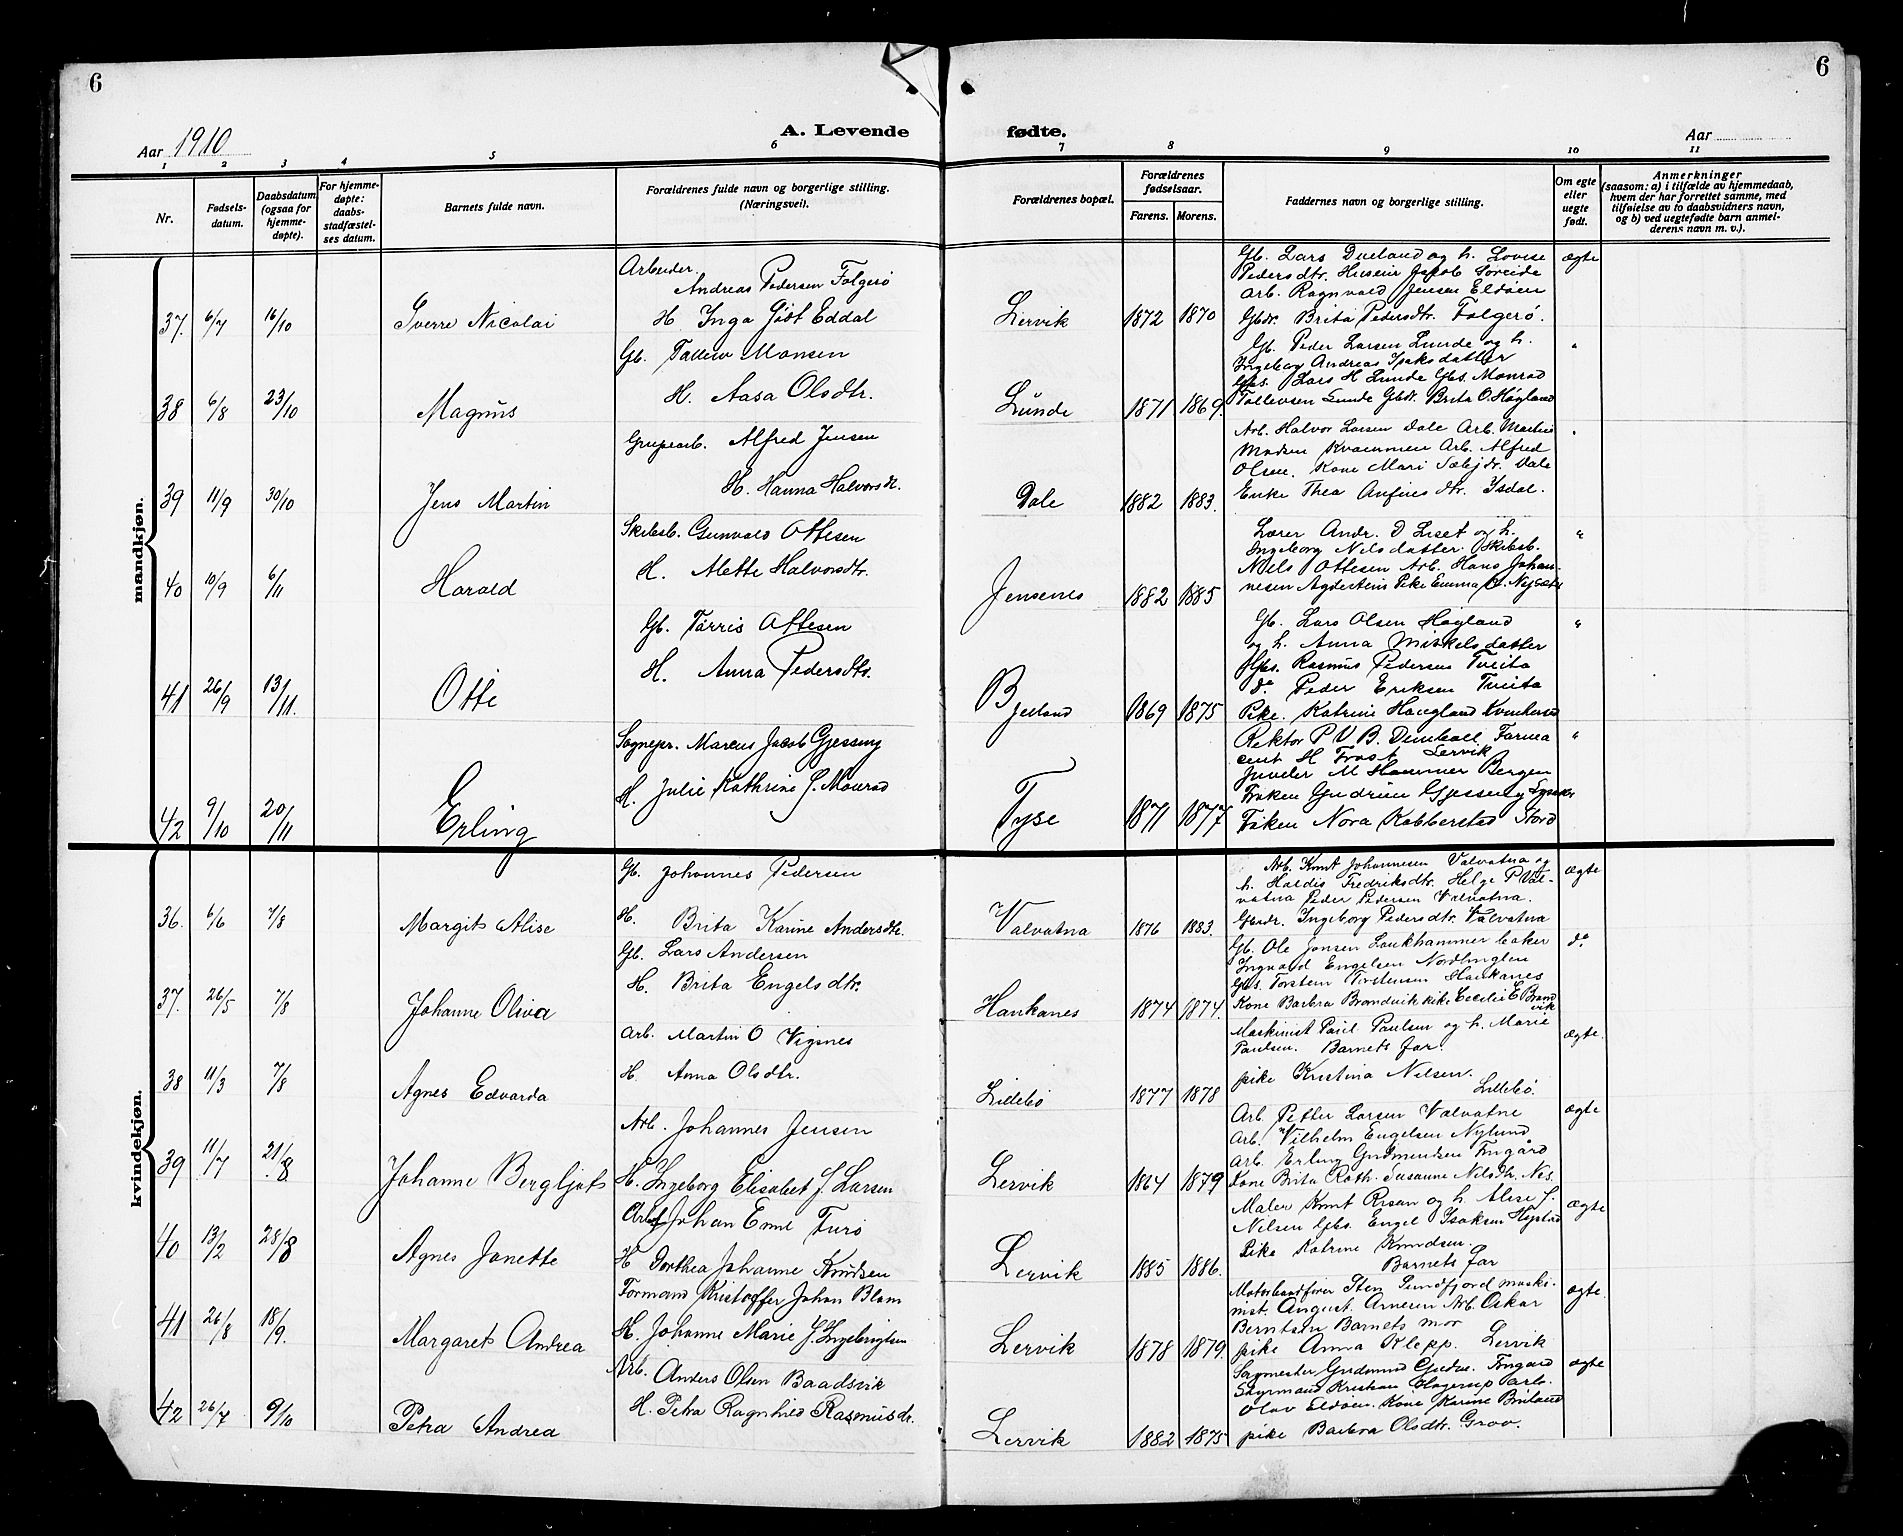 6
6
Aar 1910
A. Levende
fødte.
Aar
1 2 3 4 5 6 7 8 9 10 11
Nr.
Fødsels-
datum.
Daabsdatum
(ogsaa for
hjemme-
døpte).
For hjemme-
døpte:
daabs-
stadfæstel-
ses datum.
Barnets fulde navn.
Forældrenes fulde navn og borgerlige stilling.
(Næringsvei).
Forældrenes bopæl.
Forældrenes
fødselsaar.
Farens. Morens.
Faddernes navn og borgerlige stilling.
Om egte
eller
uegte
født.
Anmerkninger
(saasom: a) i tilfælde av hjemmedaab,
hvem der har forrettet samme, med
tilføielse av to daabsvidners navn,
og b) ved uegtefødte barn anmel-
derens navn m. v.).
mandkjøn.
37. 6/7 16/10 Sverre Nicolai
Arbeider.
Andreas Pedersen Folgerø
H. Inga Gjøt Eddal
Lervik 1872 1870
Gb. Lars Dueland og h. Lovise
Pedersdtr. Huseier Jakob Soreide
Arb. Ragnvald Jensen Eldøen
Gbdr. Brita Pedersdtr. Folgerø.
ægte
38 6/8 23/10 Magnus
Gb. Tallev Monsen
H. Aasa Olsdtr.
Lunde 1871 1869.
Gb. Peder Larsen Lunde og h.
Ingeborg Andreas Isaksdatter
Gbs. Lars H Lunde Gbs. Monrad
Tollevsen Lunde Gbdr. Brita O. Høgland
"
39 11/9 30/10 Jens Martin
Grupearb. Alfred Jensen
H. Hanna Halvorsdtr.
Dale 1882 1883.
Arb. Halvor Larsen Dale Arb. Martin
Madsen Kvammen Arb. Alfred
Olsen. Kone Mari Dale
Enke Thea Anfinsdtr. Isdal.
"
40 10/9 6/11 Harald
Skibsb. Gunvald Ottesen
H. Mette Halvorsdtr.
Jensenes 1882 1885
Lærer Andr. D Liset og h.
Ingeborg Nilsdatter. Skibsb.
Niels Ottesen Arb. Hans Johan-
nesen Agdestein Pike Emma
"
41 26/9 13/11. Otte
Gb. Tørris Ottesen
H. Anna Pedersdtr.
Bjelland 1869 1875
Gb. Lars Olsen Høgland
og h. Anna Mikkelsdatter
Gbs. Rasmus Pedersen Tveita
do Peder Eriksen Tveita
Pike. Katrine Haugland
"
42 9/10 20/11 Erling
Sognepr. Marcus Jacob Gjessing
H. Julie Kathrine S. Monrad
Tyse 1871 1877
Rektor P. V. B. Farma
cent H Frost Lervik
Juveler M Hammer Bergen
Frøken Gudrun Gjessing
Frøken Nora Kobberstad Stord
"
kvindekjøn.
36. 6/6 7/8 Margit Alise
Gb. Johannes Pedersen
H. Brita Karine Andersdtr.
Valvatna 1876 1883.
Arb. Knut Johannesen Valvatna og
h. Haldis Fredriksdtr. Helge P Val-
vatna Peder Pedersen Valvatna.
Gbrdr. Ingeborg Pedersdtr. Valvatna
ægte
37. 26/5 7/8 Johanne Oliva
Gb. Lars Andersen
H. Brita Engelsdtr.
Haukanes 1874 1874.
Gb. Ole Jonsen Laukhammer baker
Ingvald Engelsen
Gbs. Torstein Torstensen Haukanes
Kone Barbra Brandvik pike Cecilie E Brand
vik
do
38 11/3 7/8 Agnes Edvarda
Arb. Martin O Vigsnes
H. Anna Olsdtr.
Lillebø 1877 1878
Maskinist Paul Paulsen og h. Marie
Paulsen. Barnets far.
pike Kristina Nilsen.
Lillebø.
ægte.
39 11/7 21/8 Johanne Bergljot
Arb. Johannes Jensen
H. Ingeborg Elisabet J Larsen
Lervik 1864 1879
Arb. Petter Larsen Valvatne
Arb. Vilhelm Engelsen Nylund
Arb. Erling Gudmundsen Frugård
Kone Brita Rath. Susanne Nilsdtr. Nes.
ægte
40 13/2 28/8 Agnes Janette
Arb Johan Emil Turø
H Dorthea Johanne Knudsen
Lervik 1885 1886.
Maler Knut Risan og h. Alise J.
Nilsen Gbs. Engel Isaksen Hystad
Pike Katrine Knudsen.
Barnets far
ægte
41 26/8 18/9. Margaret Andrea
Formand Kristoffer Johan Blom
H. Johanne Marie J. Ingebrigtsen
Lervik 1878 1879.
Motorbaadfører Sten Sundfjord maski-
nist. August Arnesen Arb. Oskar
Berntsen Barnets mor
pike Anna Klepp. Lervik
ægte.
42 26/7 9/10 Petra Andrea
Arb. Anders Olsen Baadsvik
H. Petra Ragnhild Rasmusdr.
Lervik 1882 1875
Sagmester Gudmund Frugård
Styrmand Kristian Hagerup Arb.
Olav Eldøen. Kone Karine
pike Barbra Olsdtr. Grov.
ægte